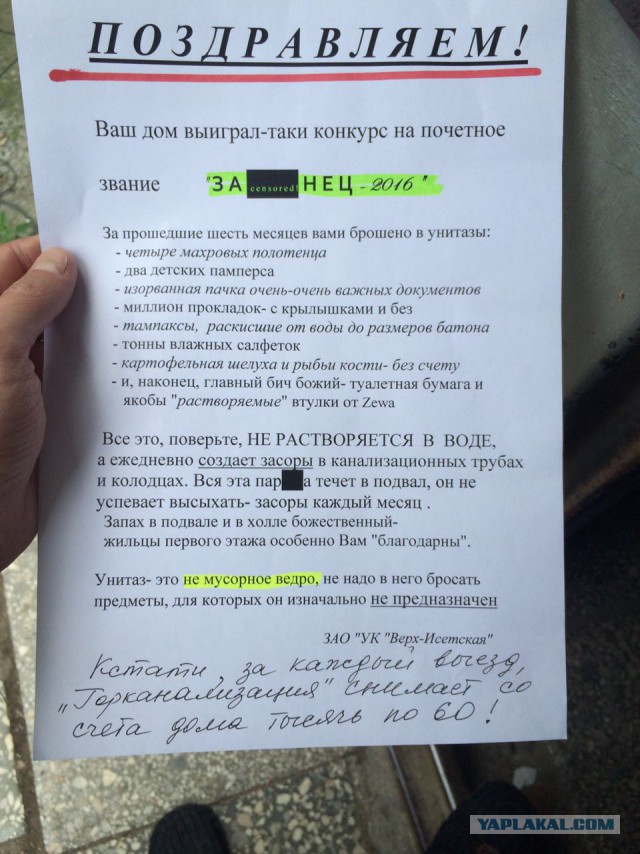 ПОЗДРАВЛЯЕМ!
Ваш дом выиграл-таки конкурс на почетное
звание "ЗА censored! НЕЦ - 2016"
За прошедшие шесть месяцев вами брошено в унитазы:
- четыре махровых полотенца
- два детских памперса
- изорванная пачка очень-очень важных документов
- миллион прокладок- с крылышками и без
- тампаксы, раскисшие от воды до размеров батона
- тонны влажных салфеток
- картофельная шелуха и рыбьи кости- без счету
- и, наконец, главный бич божий- туалетная бумага и
якобы "растворяемые" втулки от Zewa
Все это, поверьте, НЕ РАСТВОРЯЕТСЯ В ВОДЕ,
а ежедневно создает засоры в канализационных трубах
и колодцах. Вся эта пар а течет в подвал, он не
успевает высыхать- засоры каждый месяц .
Запах в подвале и в холле божественный-
жильцы первого этажа особенно Вам "благодарны".
Унитаз- это не мусорное ведро, не надо в него бросать
предметы, для которых он изначально не предназначен
ЗАО "УК "Верх-Исетская"
Кстати, за каждый выезд,
"Горканализация" снимает со
счета дома тысячь по 60!
YAPLAKAL.COM